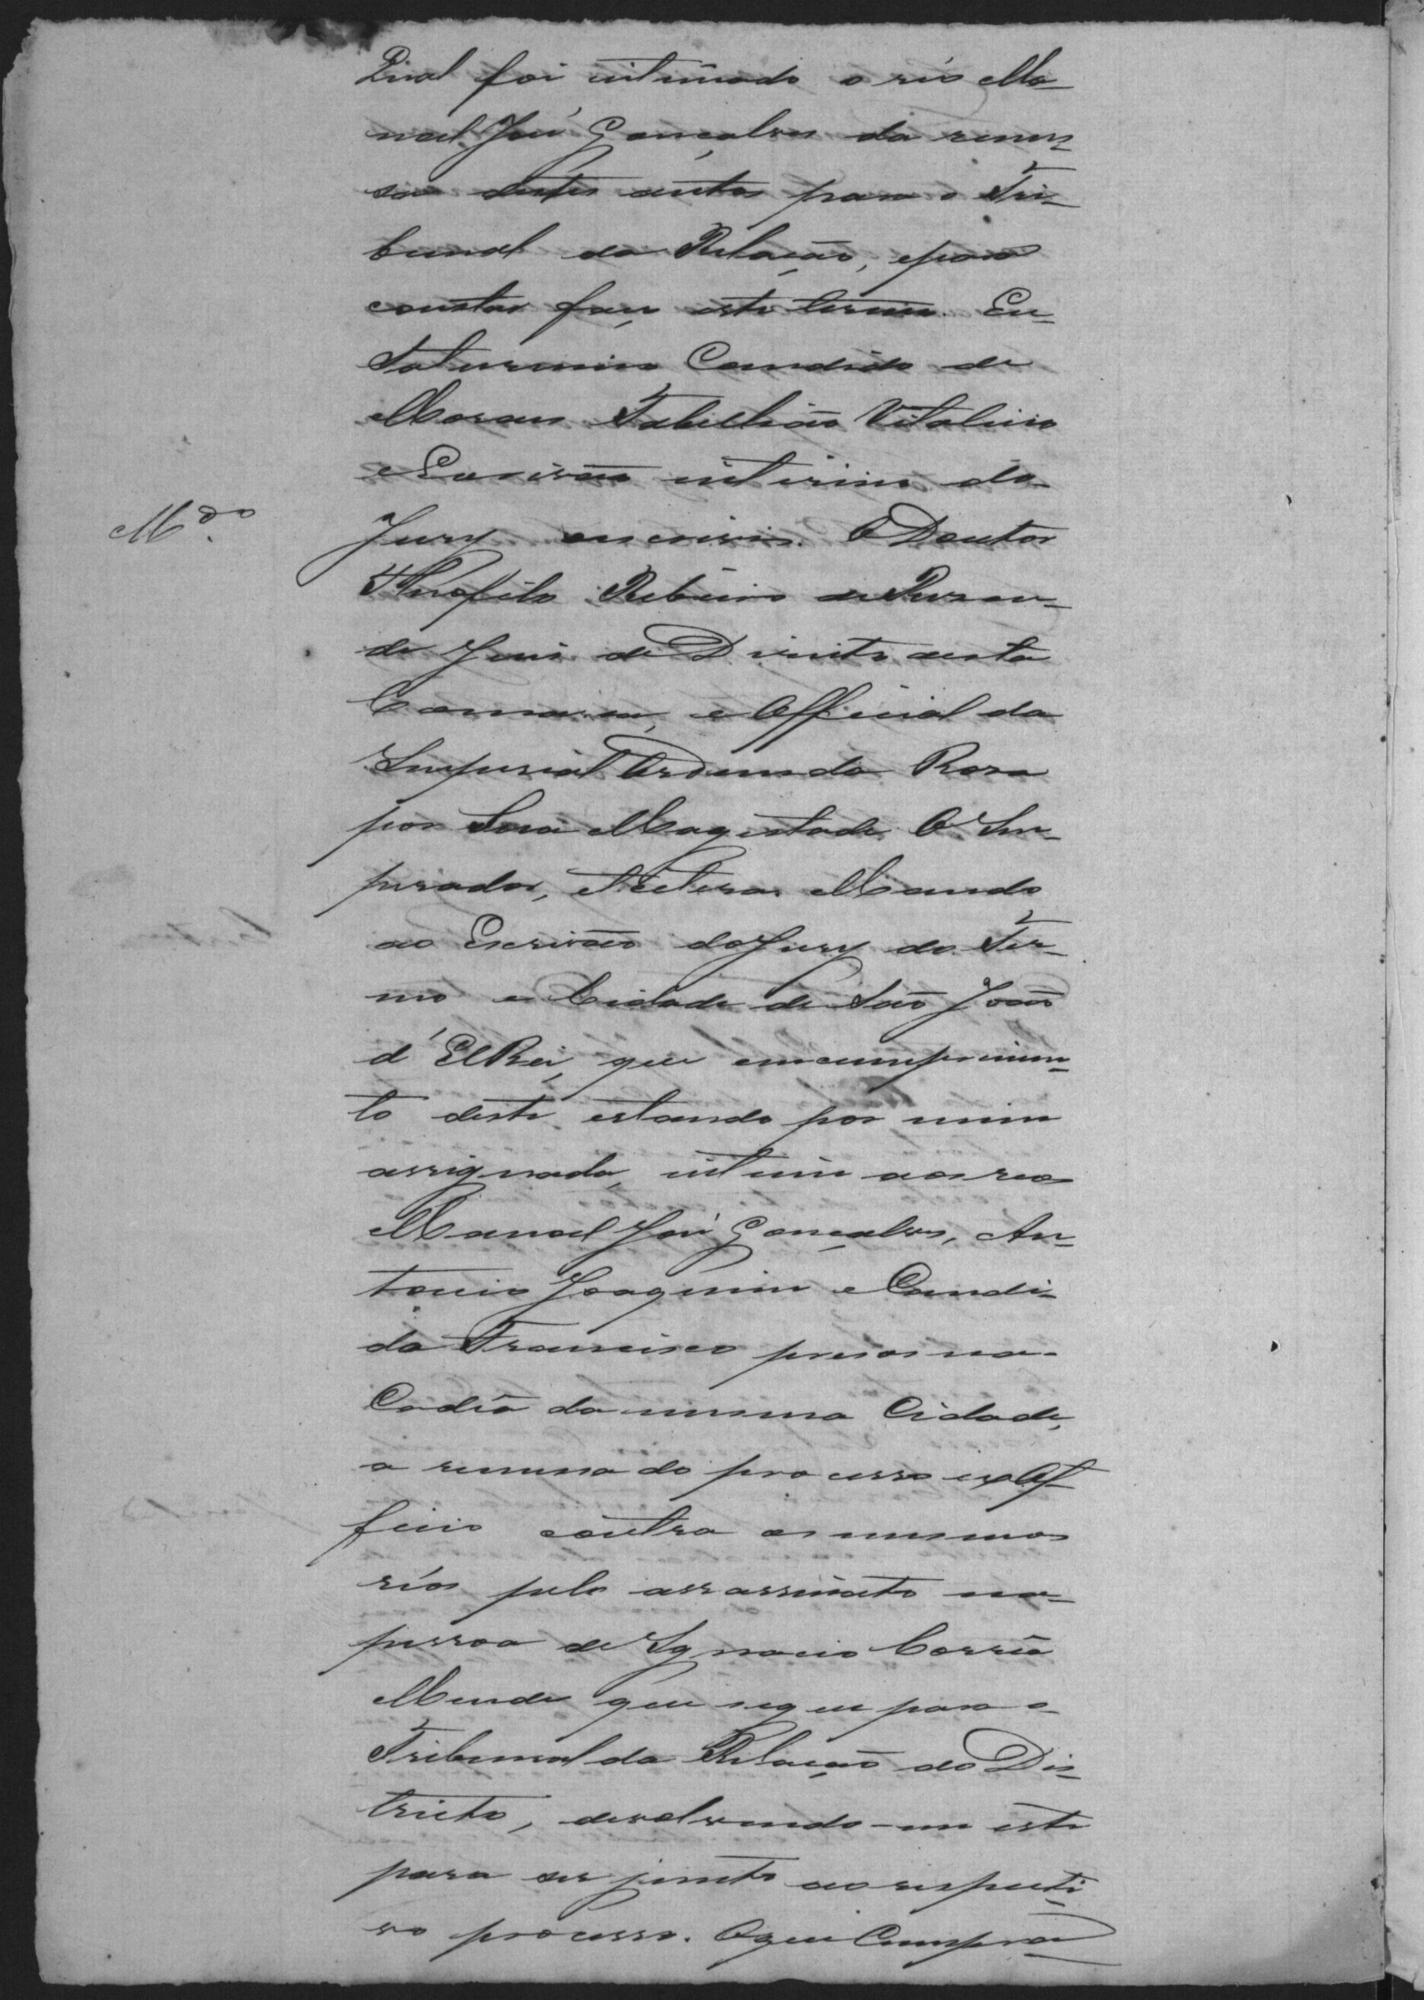 foi intimado o réo Ma-
noel José Gonçalves da remes-
sa destes autos para o Tri-
bunal da Relação, e para
constar faço este termo. Eu
Saturnino Candido de
Moraes Tabellião Vitalicio
e Escrivão interino do
Jury escrevi. O Doutor
Theofilo Ribeiro de Resen-
de Juis de Direito desta
Comarca, e Official da
Imperial Ordem da Rosa
por Sua Magestade O Im-
perador, etcetera. Mando
ao Escrivão do Jury do Ter-
mo e Cidade de São João
d'El Rei, que em cumprimen-
to deste, estando por mim
assignado, intime aos reos
Manoel José Gonçalves, An-
tonio Joaquim e Candi-
do Francisco presos na
Cadêa da mesma Cidade,
a remessa do processo ex Of-
ficio contra os mesmos
réos pelo assassinato na
pessoa de Ignacio Corrêa
Mende que segue para o
Tribunal da Relação do Dis-
tricto, devolvendo-me este
para ser junto ao respecti-
vo processo. O que Cumpra
M.do